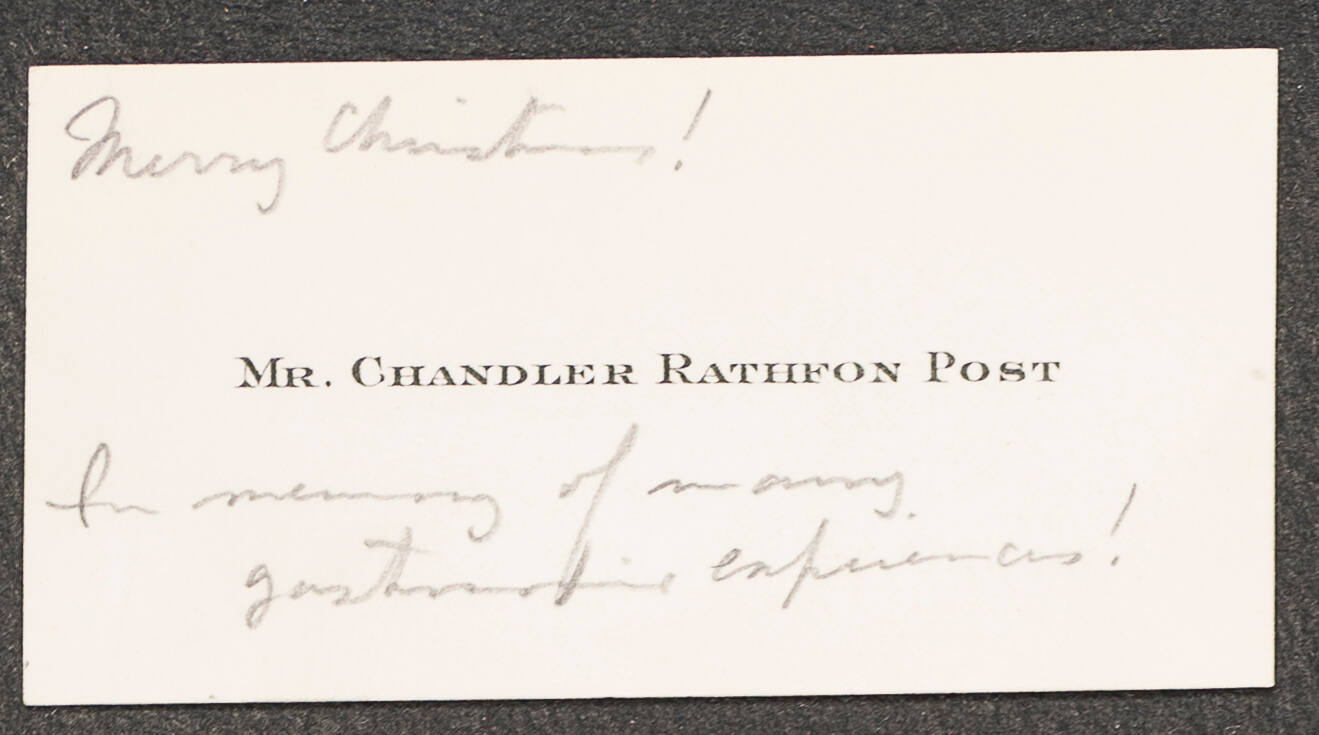 Merry Christmas!
Mr. Chandler Rathfon Post
In memory of many
gastronomic experiences!